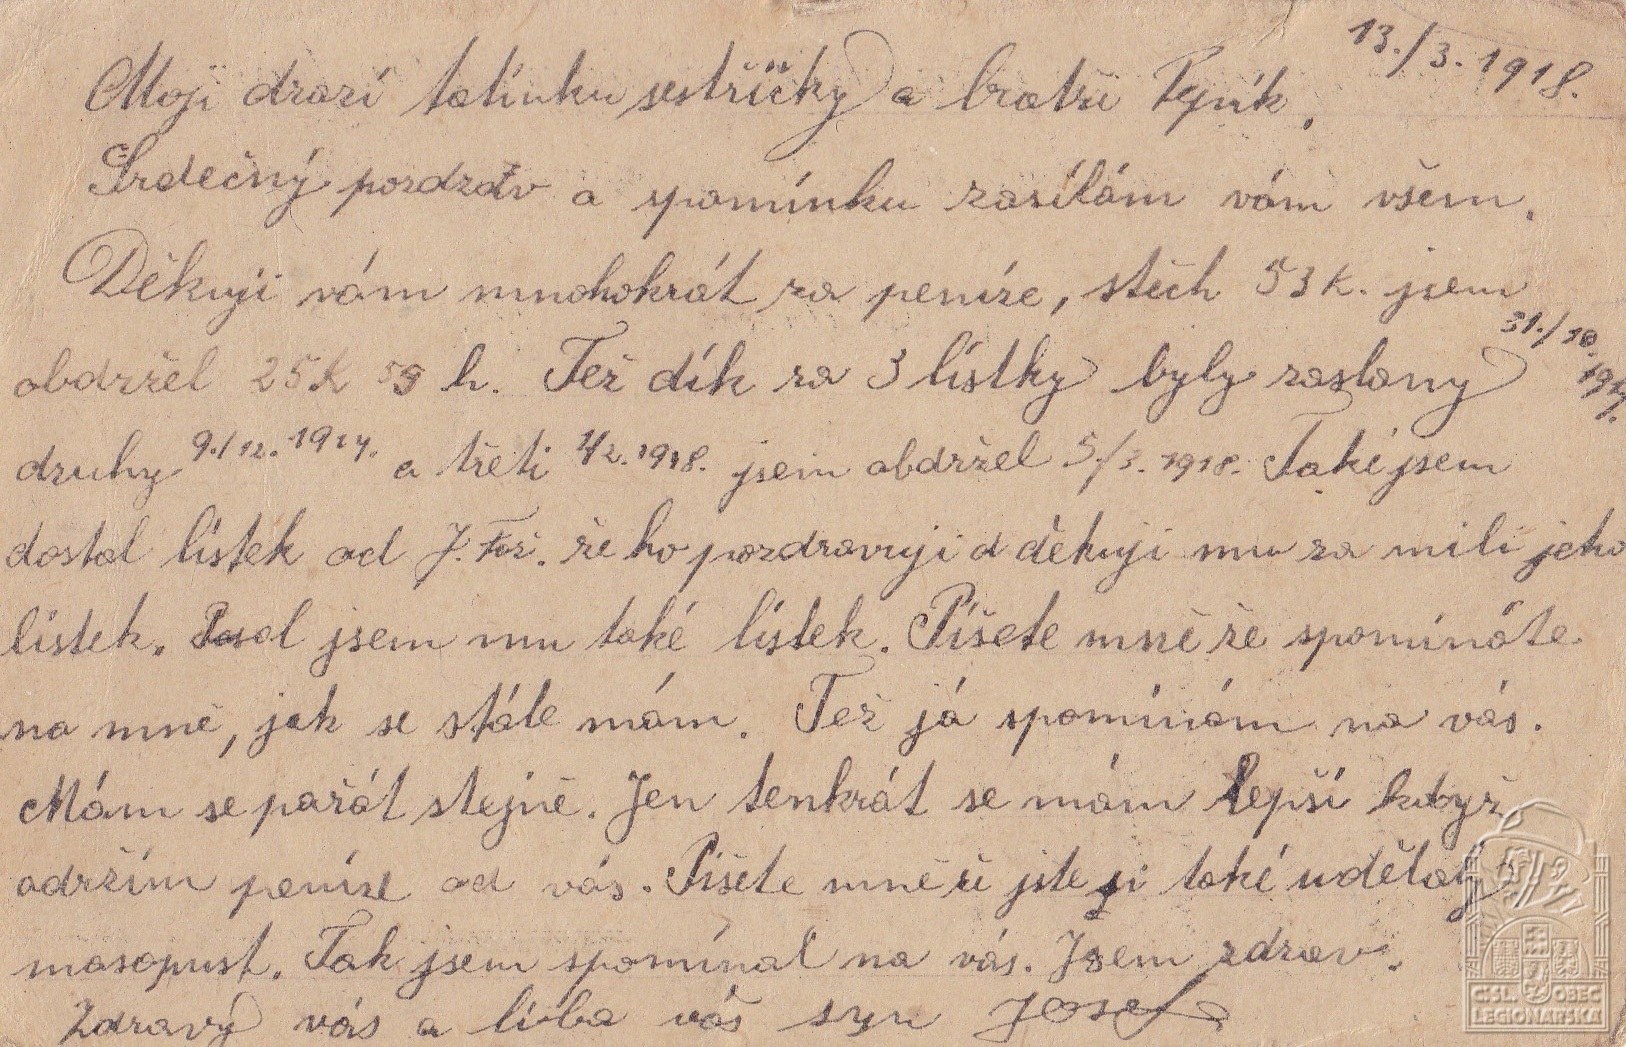 13./3. 1918.
Moji drazí tatínku sestřičky a bratře Pepík.
Srdečný pozdrav a spomínku zasílám vám všem.
Děkuji vám mnohokrát za peníze, stěch 53 K. jsem
obdržel 25 K 59 h. Též dík za 3 lístky byly zaslany 31./10. 1917.
druhy 9./12. 1917. a třetí 1/2. 1918. jsem obdržel 5./3. 1918. Také jsem
dostal lístek od J. Foř. že ho pozdravuji a děkuji mu za milí jeho
lístek. Psal jsem mu také lístek. Píšete mně že spomínáte
na mně, jak se stále mám. Též já spomínám na vás.
Mám se pařát stejně. Jen tenkrát se mám lepší kdyř
održím peníze od vás. Píšete mně že jste si také udělaly
masopust. Tak jsem spomínal na vás. Jsem zdrav.
Zdravý vás a líba váš syn Josef
ČSL. OBEC
LEGIONÁŘSKÁ